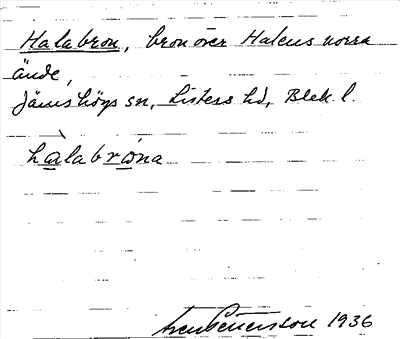 Halabron, bron över Halens norra
ände,
Jämshögs sn, Listers hd, Blek. l.
hàlabròna
Sven Benson 1936